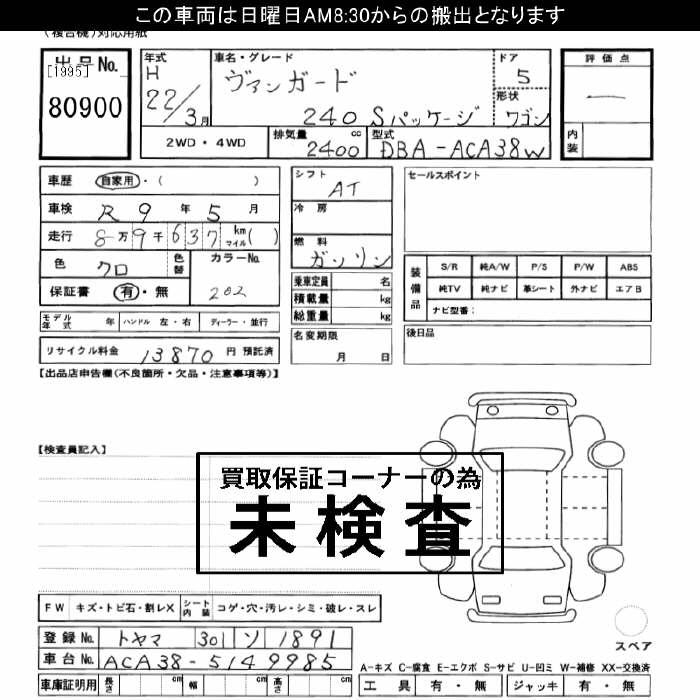 この車両は日曜日AM8:30からの搬出となります
(複合機)対応用紙
出品No.
[1995]
80900
年式
H
22/3月
車名・グレード
ヴァンガード
240 Sパッケージ
ドア
5
形状
ワゴン
評価点
—
内装
2WD・4WD
排気量
2400 cc
型式
DBA-ACA38W
車歴 自家用・( )
車検 R 9 年 5 月
走行 8万9千637 km マイル( )
色 クロ 色替
カラーNo.
202
保証書 有・無
シフト
AT
冷房
燃料
ガソリン
乗車定員 名
積載量 kg
総重量 kg
セールスポイント
装備品
S/R 純A/W P/S P/W ABS
純TV 純ナビ 革シート 外ナビ エアB
ナビ型番:
モデル年式 年 ハンドル 左・右 ディーラー・並行
リサイクル料金 13870 円 預託済
名変期限
月 日
後日品
【出品店申告欄(不良箇所・欠品・注意事項等)】
【検査員記入】
買取保証コーナーの為
未検査
FW キズ・トビ石・割レX シート内装 コゲ・穴・汚レ・シミ・破レ・スレ
登録No. トヤマ 301 ソ 1891
車台No. ACA38-5149985
車庫証明用 長さ cm 幅 cm 高さ cm
スペア
A-キズ C-腐食 E-エクボ S-サビ U-凹ミ W-補修 XX-交換済
工具 有・無 ジャッキ 有・無